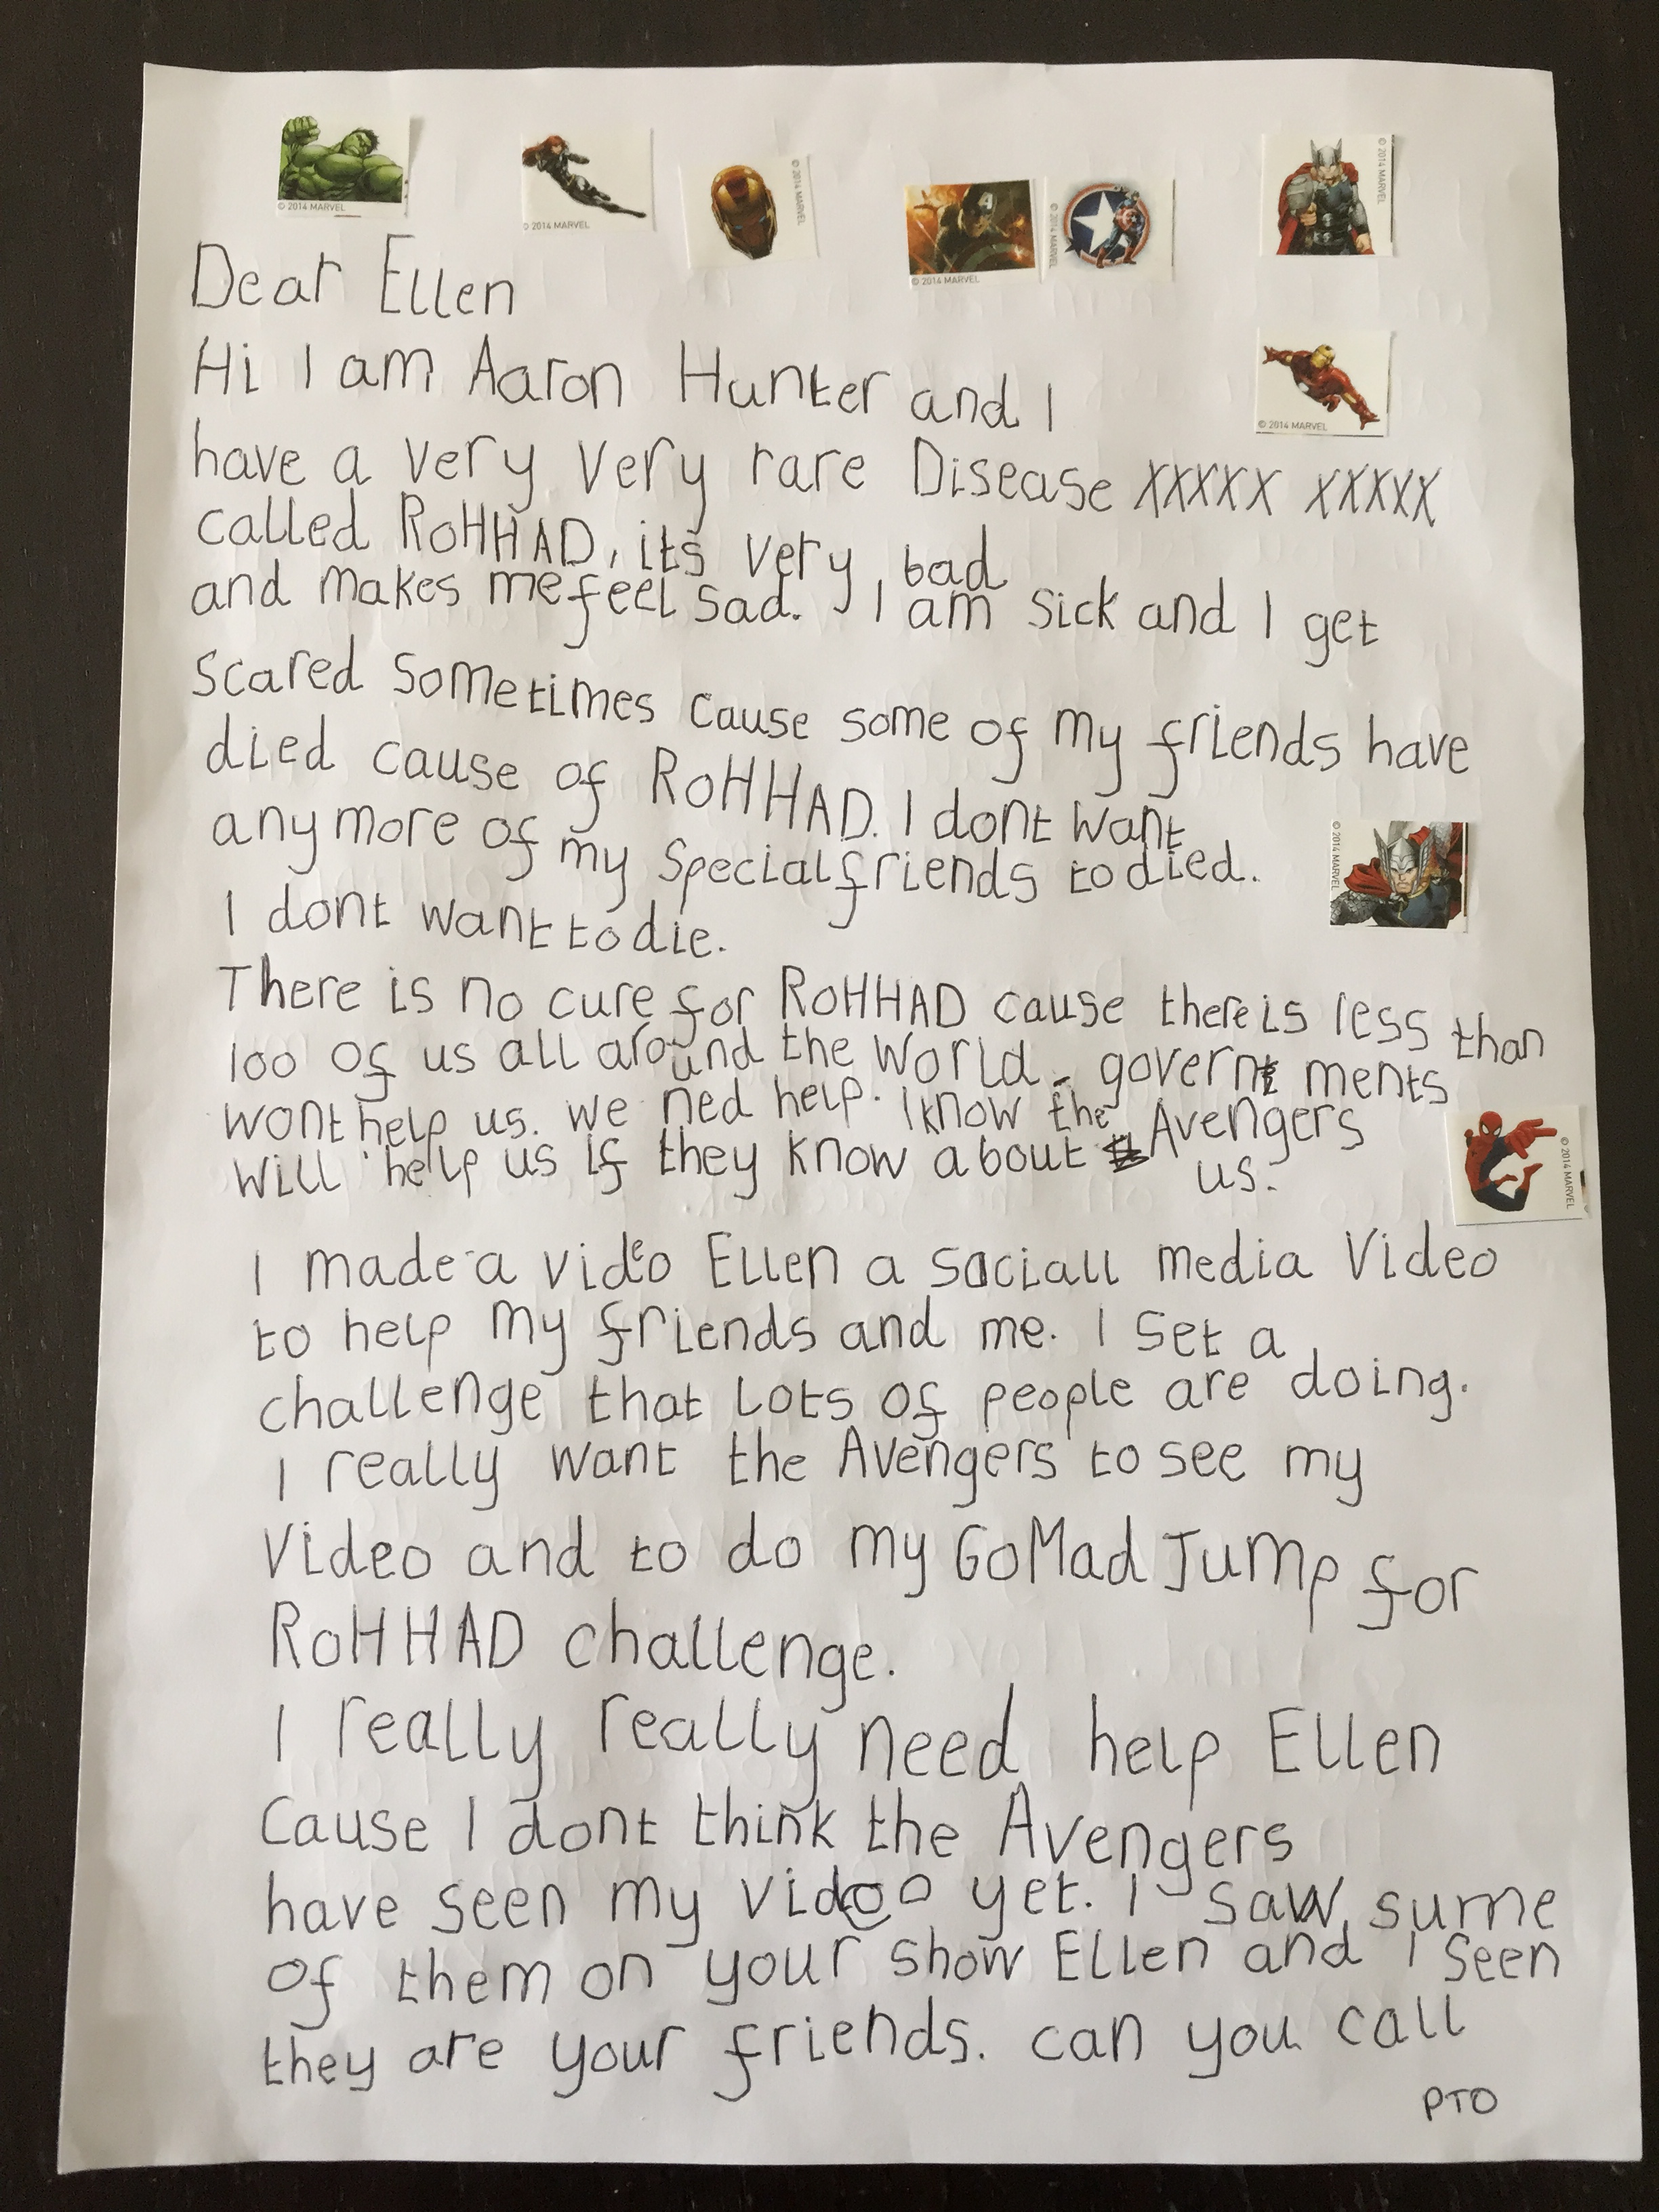 © 2014 MARVEL
© 2014 MARVEL
© 2014 MARVEL
© 2014 MARVEL
© 2014 MARVEL
© 2014 MARVEL
Dear Ellen
Hi I am Aaron Hunter and I
© 2014 MARVEL
have a very very rare Disease xxxxx xxxxx
called RoHHAD, its very bad
and makes me feel sad. I am sick and I get
scared sometimes cause some of my friends have
died cause of RoHHAD. I dont want
any more of my special friends to died.
© 2014 MARVEL
I dont want to die.
There is no cure for RoHHAD cause there is less than
100 of us all around the world. governments
wont help us. we ned help. I know the Avengers
will help us if they know about us.
© 2014 MARVEL
I made a video Ellen a sociall media Video
to help my friends and me. I set a
challenge that lots of people are doing.
I really want the Avengers to see my
Video and to do my GoMad Jump for
RoHHAD challenge.
I really really need help Ellen
Cause I dont think the Avengers
have seen my video yet. I saw sume
of them on your show Ellen and I seen
they are your friends. can you call
PTO